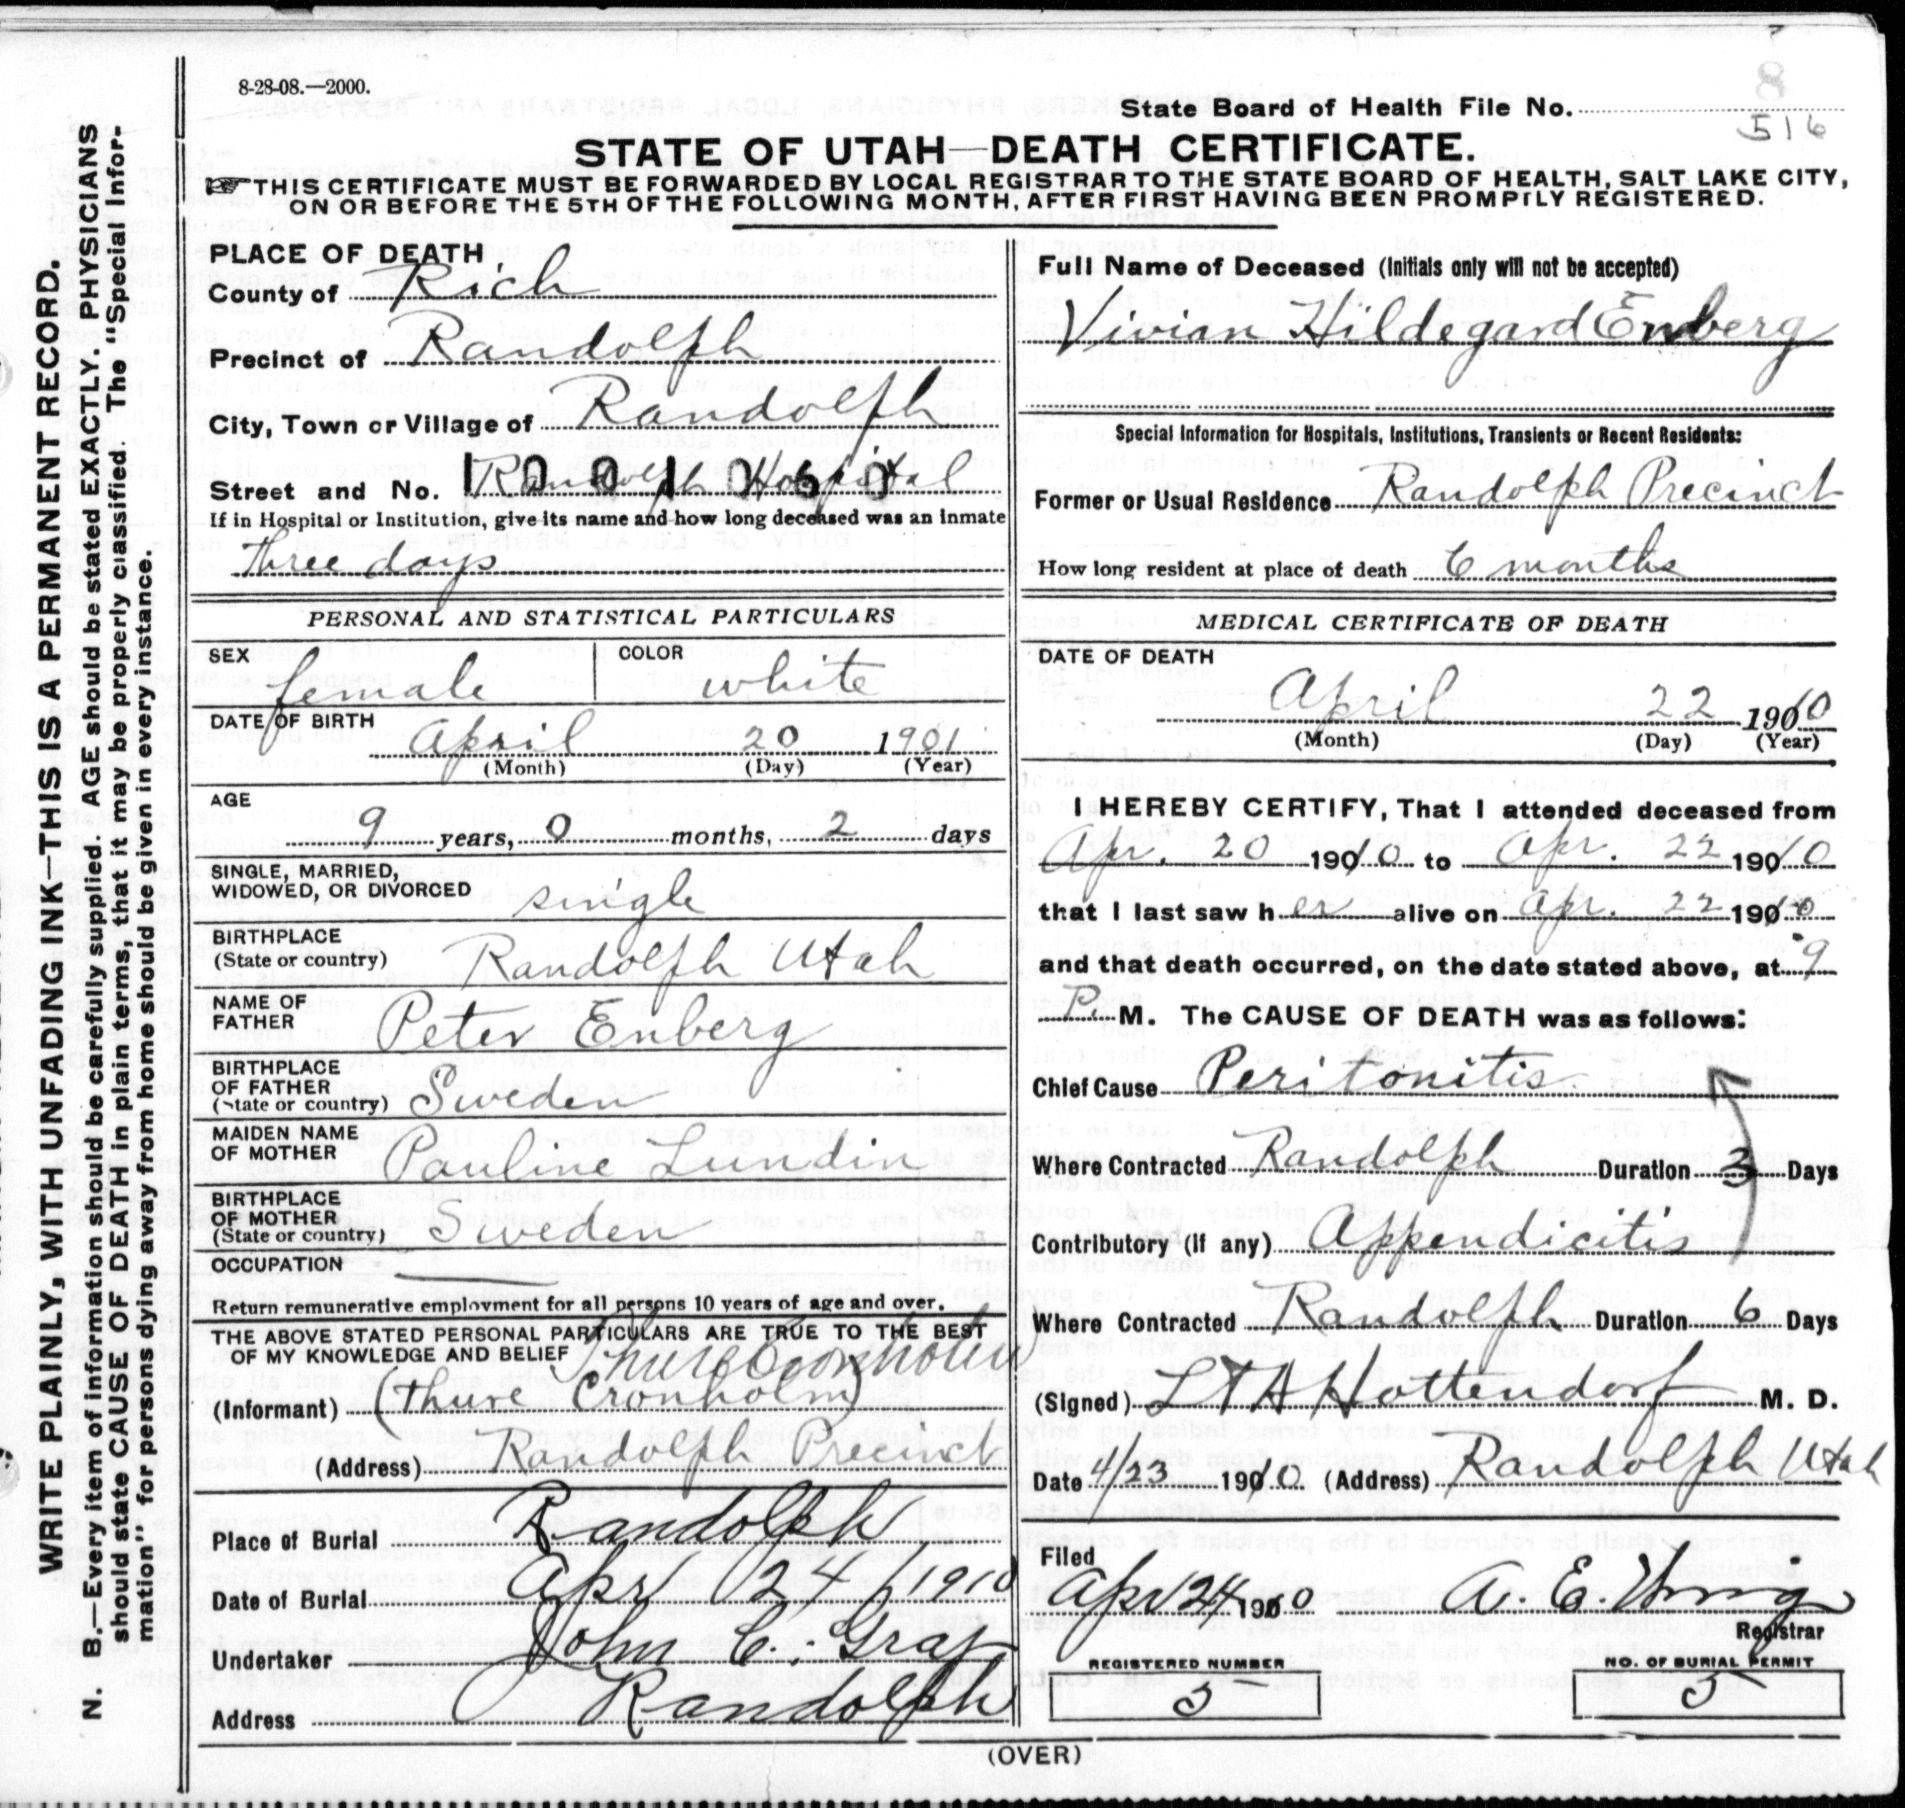 8-28-08.—2000.
8
State Board of Health File No.
516
STATE OF UTAH—DEATH CERTIFICATE.
THIS CERTIFICATE MUST BE FORWARDED BY LOCAL REGISTRAR TO THE STATE BOARD OF HEALTH, SALT LAKE CITY,
ON OR BEFORE THE 5TH OF THE FOLLOWING MONTH, AFTER FIRST HAVING BEEN PROMPTLY REGISTERED.
WRITE PLAINLY, WITH UNFADING INK—THIS IS A PERMANENT RECORD.
N. B.—Every item of information should be carefully supplied. AGE should be stated EXACTLY. PHYSICIANS
should state CAUSE OF DEATH in plain terms, that it may be properly classified. The "Special Infor-
mation" for persons dying away from home should be given in every instance.
PLACE OF DEATH
County of Rich
Precinct of Randolph
City, Town or Village of Randolph
Street and No. Randolph Hospital
If in Hospital or Institution, give its name and how long deceased was an inmate
three days
PERSONAL AND STATISTICAL PARTICULARS
SEX female COLOR white
DATE OF BIRTH
April 20 1901
(Month) (Day) (Year)
AGE
9 years, 0 months, 2 days
SINGLE, MARRIED,
WIDOWED, OR DIVORCED single
BIRTHPLACE
(State or country) Randolph Utah
NAME OF
FATHER Peter Enberg
BIRTHPLACE
OF FATHER
(State or country) Sweden
MAIDEN NAME
OF MOTHER Pauline Lundin
BIRTHPLACE
OF MOTHER
(State or country) Sweden
OCCUPATION
Return remunerative employment for all persons 10 years of age and over.
THE ABOVE STATED PERSONAL PARTICULARS ARE TRUE TO THE BEST
OF MY KNOWLEDGE AND BELIEF Thure Cronholm
(Informant) (Thure Cronholm)
(Address) Randolph Precinct
Place of Burial Randolph
Date of Burial Apr 24 1910
Undertaker John C. Graf
Address Randolph
Full Name of Deceased (Initials only will not be accepted)
Vivian Hildegard Enberg
Special Information for Hospitals, Institutions, Transients or Recent Residents:
Former or Usual Residence Randolph Precinct
How long resident at place of death 6 months
MEDICAL CERTIFICATE OF DEATH
DATE OF DEATH
April 22 1910
(Month) (Day) (Year)
I HEREBY CERTIFY, That I attended deceased from
Apr. 20 1910 to Apr. 22 1910
that I last saw her alive on Apr. 22 1910
and that death occurred, on the date stated above, at 9
P. M. The CAUSE OF DEATH was as follows:
Chief Cause Peritonitis
Where Contracted Randolph Duration 3 Days
Contributory (If any) Appendicitis
Where Contracted Randolph Duration 6 Days
(Signed) Hottendorf M. D.
Date 4/23 1910 (Address) Randolph Utah
Filed
Apr 24 1910 A. E.
Registrar
REGISTERED NUMBER NO. OF BURIAL PERMIT
5 5
(OVER)